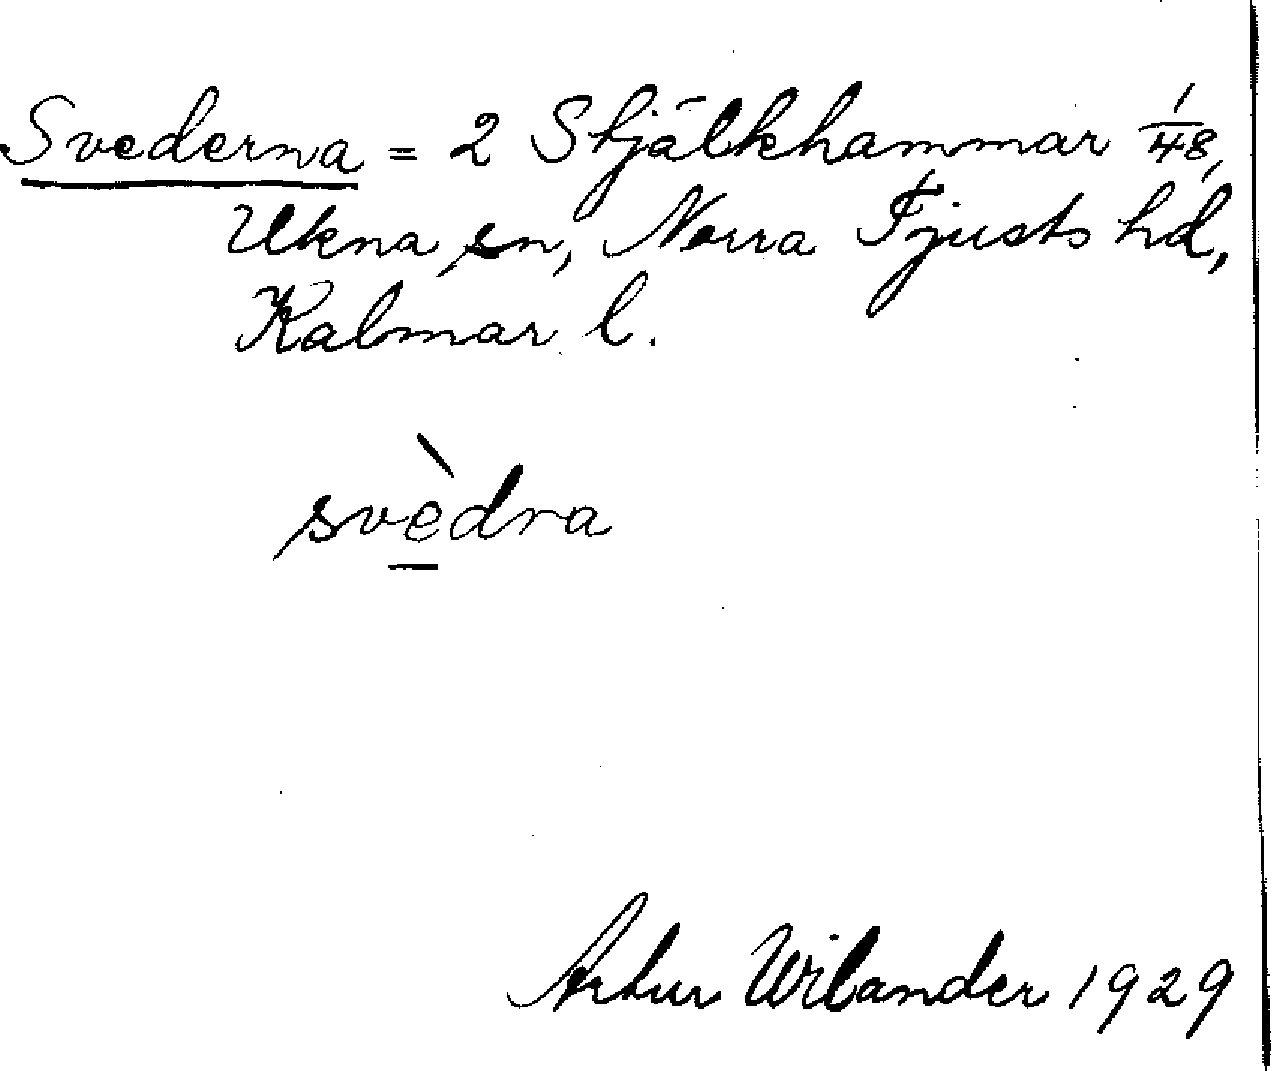 Svederna = 2 Stjälkhammar 1/48,
Ukna sn, Norra Tjusts hd,
Kalmar l.
svèdra
Artur Wilander 1929